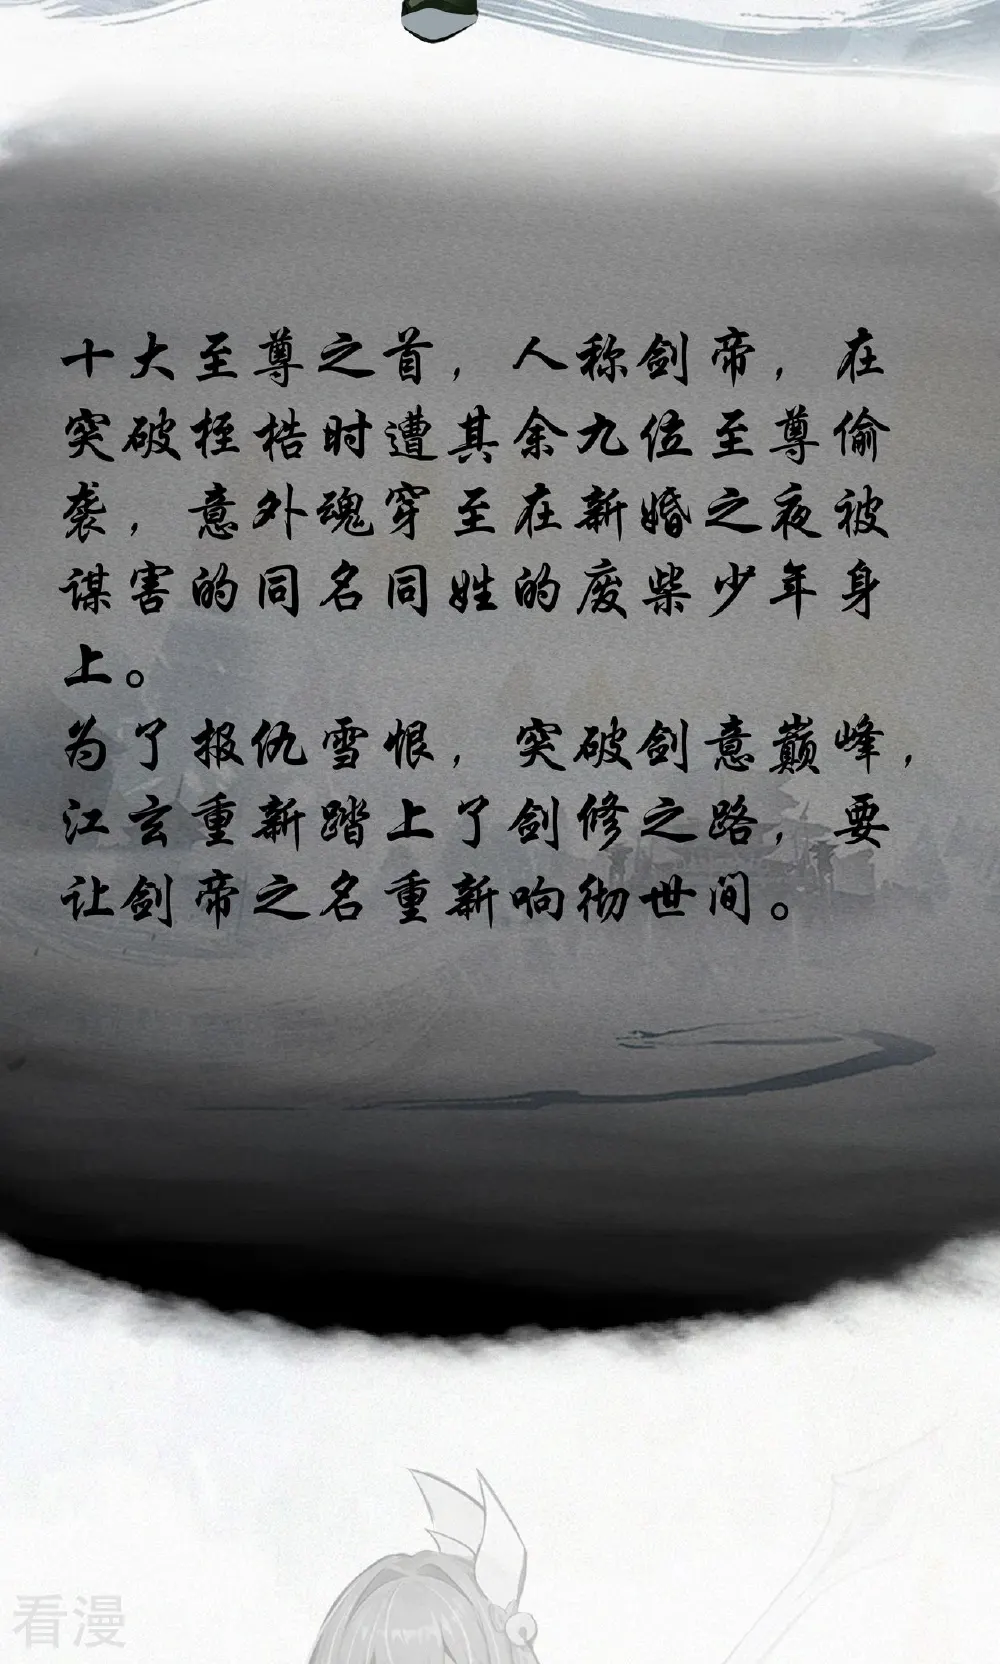 十大至尊之首，人称剑帝，在
突破桎梏时遭其余九位至尊偷
袭，意外魂穿至在新婚之夜被
谋害的同名同姓的废柴少年身
上。
为了报仇雪恨，突破剑意巅峰，
江玄重新踏上了剑修之路，要
让剑帝之名重新响彻世间。
看漫